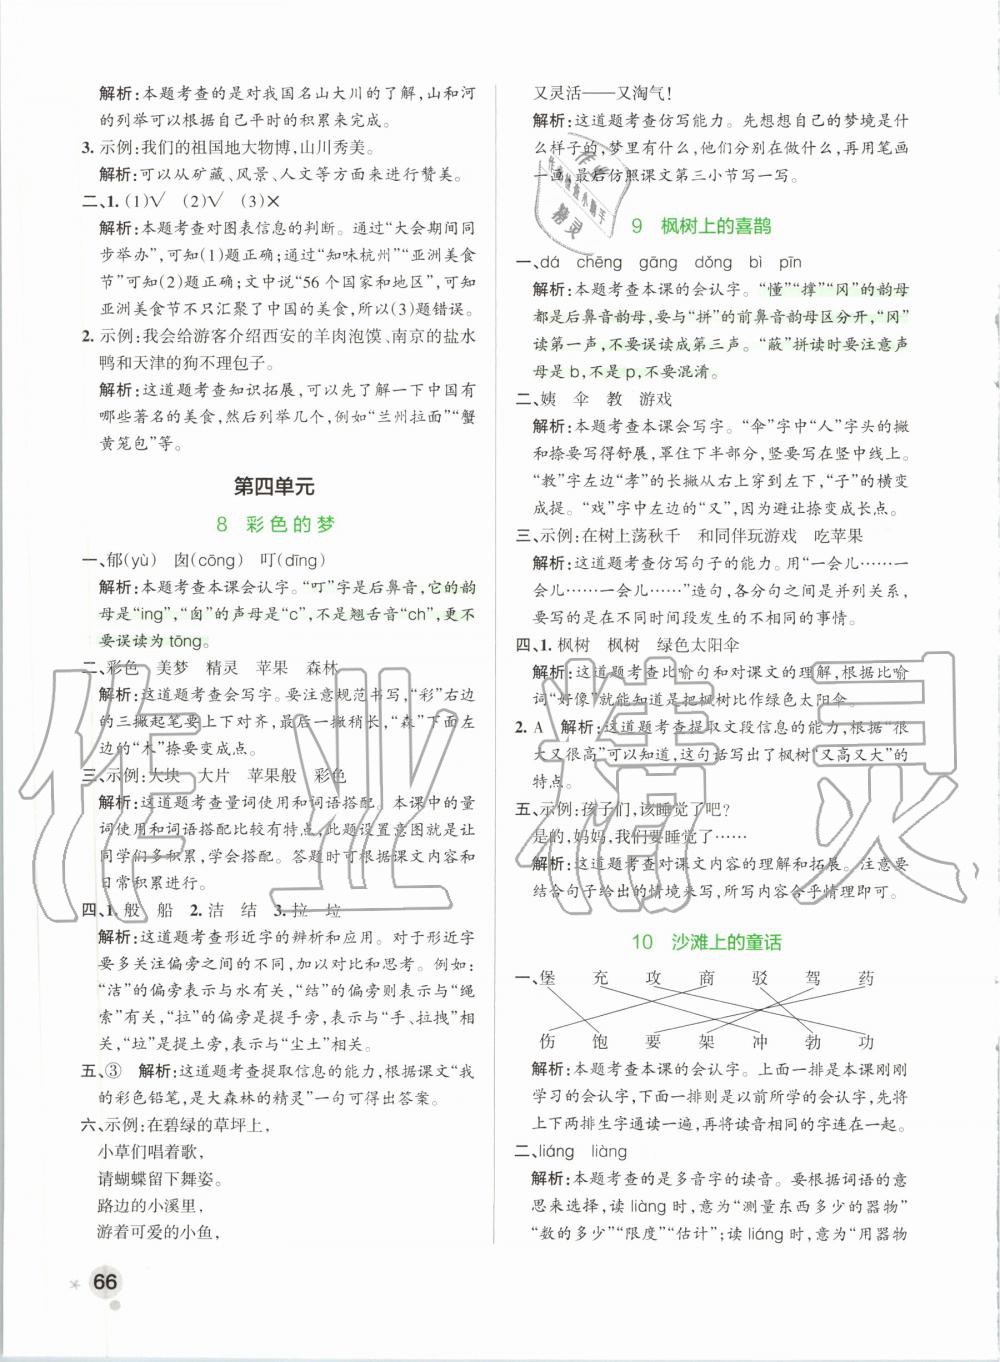 解析:本题考查的是对我国名山大川的了解,山和河
的列举可以根据自己平时的积累来完成。
3. 示例:我们的祖国地大物博,山川秀美。
解析:可以从矿藏、风景、人文等方面进行赞美。
二、1. (1)√ (2)√ (3)×
解析:本题考查对图表信息的判断。通过“大会期间同
步举办”,可知(1)题正确;通过“知味杭州”“亚洲美食
节”可知(2)题正确;文中说“56 个国家和地区”,可知
亚洲美食节不只汇聚了中国的美食,所以(3)题错误。
2. 示例:我会给游客介绍西安的羊肉泡馍、南京的盐水
鸭和天津的狗不理包子。
解析:这道题考查知识拓展,可以先了解一下中国有
哪些著名的美食,然后列举几个,例如“兰州拉面”“蟹
黄笼包”等。
第四单元
8 彩色的梦
一、郁(yù) 囱(cōng) 叮(dīng)
解析:本题考查本课会认字。“叮”字是后鼻音,它的韵
母是“ing”,“囱”的声母是“c”,不是翘舌音“ch”,更不
要误读为 tōng。
二、彩色 美梦 精灵 苹果 森林
解析:本题考查会写字。要注意规范书写,“彩”右边
的三撇起笔要上下对齐,最后一撇稍长,“森”下面左
边的“木”捺要变成点。
三、示例:大块 大片 苹果般 彩色
解析:这道题考查量词使用和词语搭配。本课中的量
词使用和词语搭配比较有特点,此题设置意图就是让
同学们多积累,学会搭配。答题时可根据课文内容和
日常积累进行。
四、1. 般 船 2. 洁 结 3. 拉 垃
解析:这道题考查形近字的辨析和应用。对于形近字
要多关注偏旁之间的不同,加以对比和思考。例如:
“洁”的偏旁表示与水有关,“结”的偏旁则表示与“绳
索”有关,“拉”的偏旁是提手旁,表示与“手、拉拽”相
关,“垃”是提土旁,表示与“尘土”相关。
五、③ 解析:这道题考查提取信息的能力,根据课文“我
的彩色铅笔,是大森林的精灵”一句可得出答案。
六、示例:在碧绿的草坪上,
小草们唱着歌,
请蝴蝶留下舞姿。
路边的小溪里,
游着可爱的小鱼,
66
又灵活——又淘气!
解析:这道题考查仿写能力。先想想自己的梦境是什
么样子的,梦里有什么,分别在做什么,再用笔画
一画,最后仿照课文第三小节写一写。
9 枫树上的喜鹊
一、dá chēng gāng dǒng bì pīn
解析:本题考查本课的会认字。“懂”“撑”“冈”的韵母
都是后鼻音韵母,要与“拼”的前鼻音韵母区分开,“冈”
读第一声,不要误读成第三声。“蔽”拼读时要注意声
母是 b,不是 p,不要混淆。
二、姨 伞 教 游戏
解析:本题考查本课会写字。“伞”字中“人”字头的撇
和捺要写得舒展,罩住下半部分,竖要写在竖中线上。
“教”字左边“孝”的长撇从右上穿到左下,“子”的横变
成提。“戏”字中左边的“又”,因为避让捺变成长点。
三、示例:在树上荡秋千 和同伴玩游戏 吃苹果
解析:这道题考查仿写句子的能力。用“一会儿……一
会儿……一会儿……”造句,各分句之间是并列关系,
要写的是在不同时间段发生的不相同的事情。
四、1. 枫树 枫树 绿色太阳伞
解析:这道题考查比喻句和对课文的理解,根据比喻
词“好像”就能知道是把枫树比作绿色太阳伞。
2. A 解析:这道题考查提取文段信息的能力,根据“很
大又很高”可以知道,这句话写出了枫树“又高又大”的
特点。
五、示例:孩子们,该睡觉了吧?
是的,妈妈,我们要睡觉了……
解析:这道题考查对课文内容的理解和拓展。注意要
结合句子给出的情境来写,所写内容合乎情理即可。
10 沙滩上的童话
一、堡 充 攻 商 驳 驾 药
伤 饱 要 架 冲 勃 功
解析:本题考查本课的会认字。上面一排是本课刚刚
学习的会认字,下面一排是以前所学的会认字,可以将
上下两排生字通读一遍,再将读音相同的连在一起。
二、liáng liàng
解析:本题考查的是多音字的读音。要根据词语的意
思来选择,读 liàng 时,意为“测量东西多少的器物”
“数的多少”“限度”“估计”;读 liáng 时,意为“用器物
作业精灵